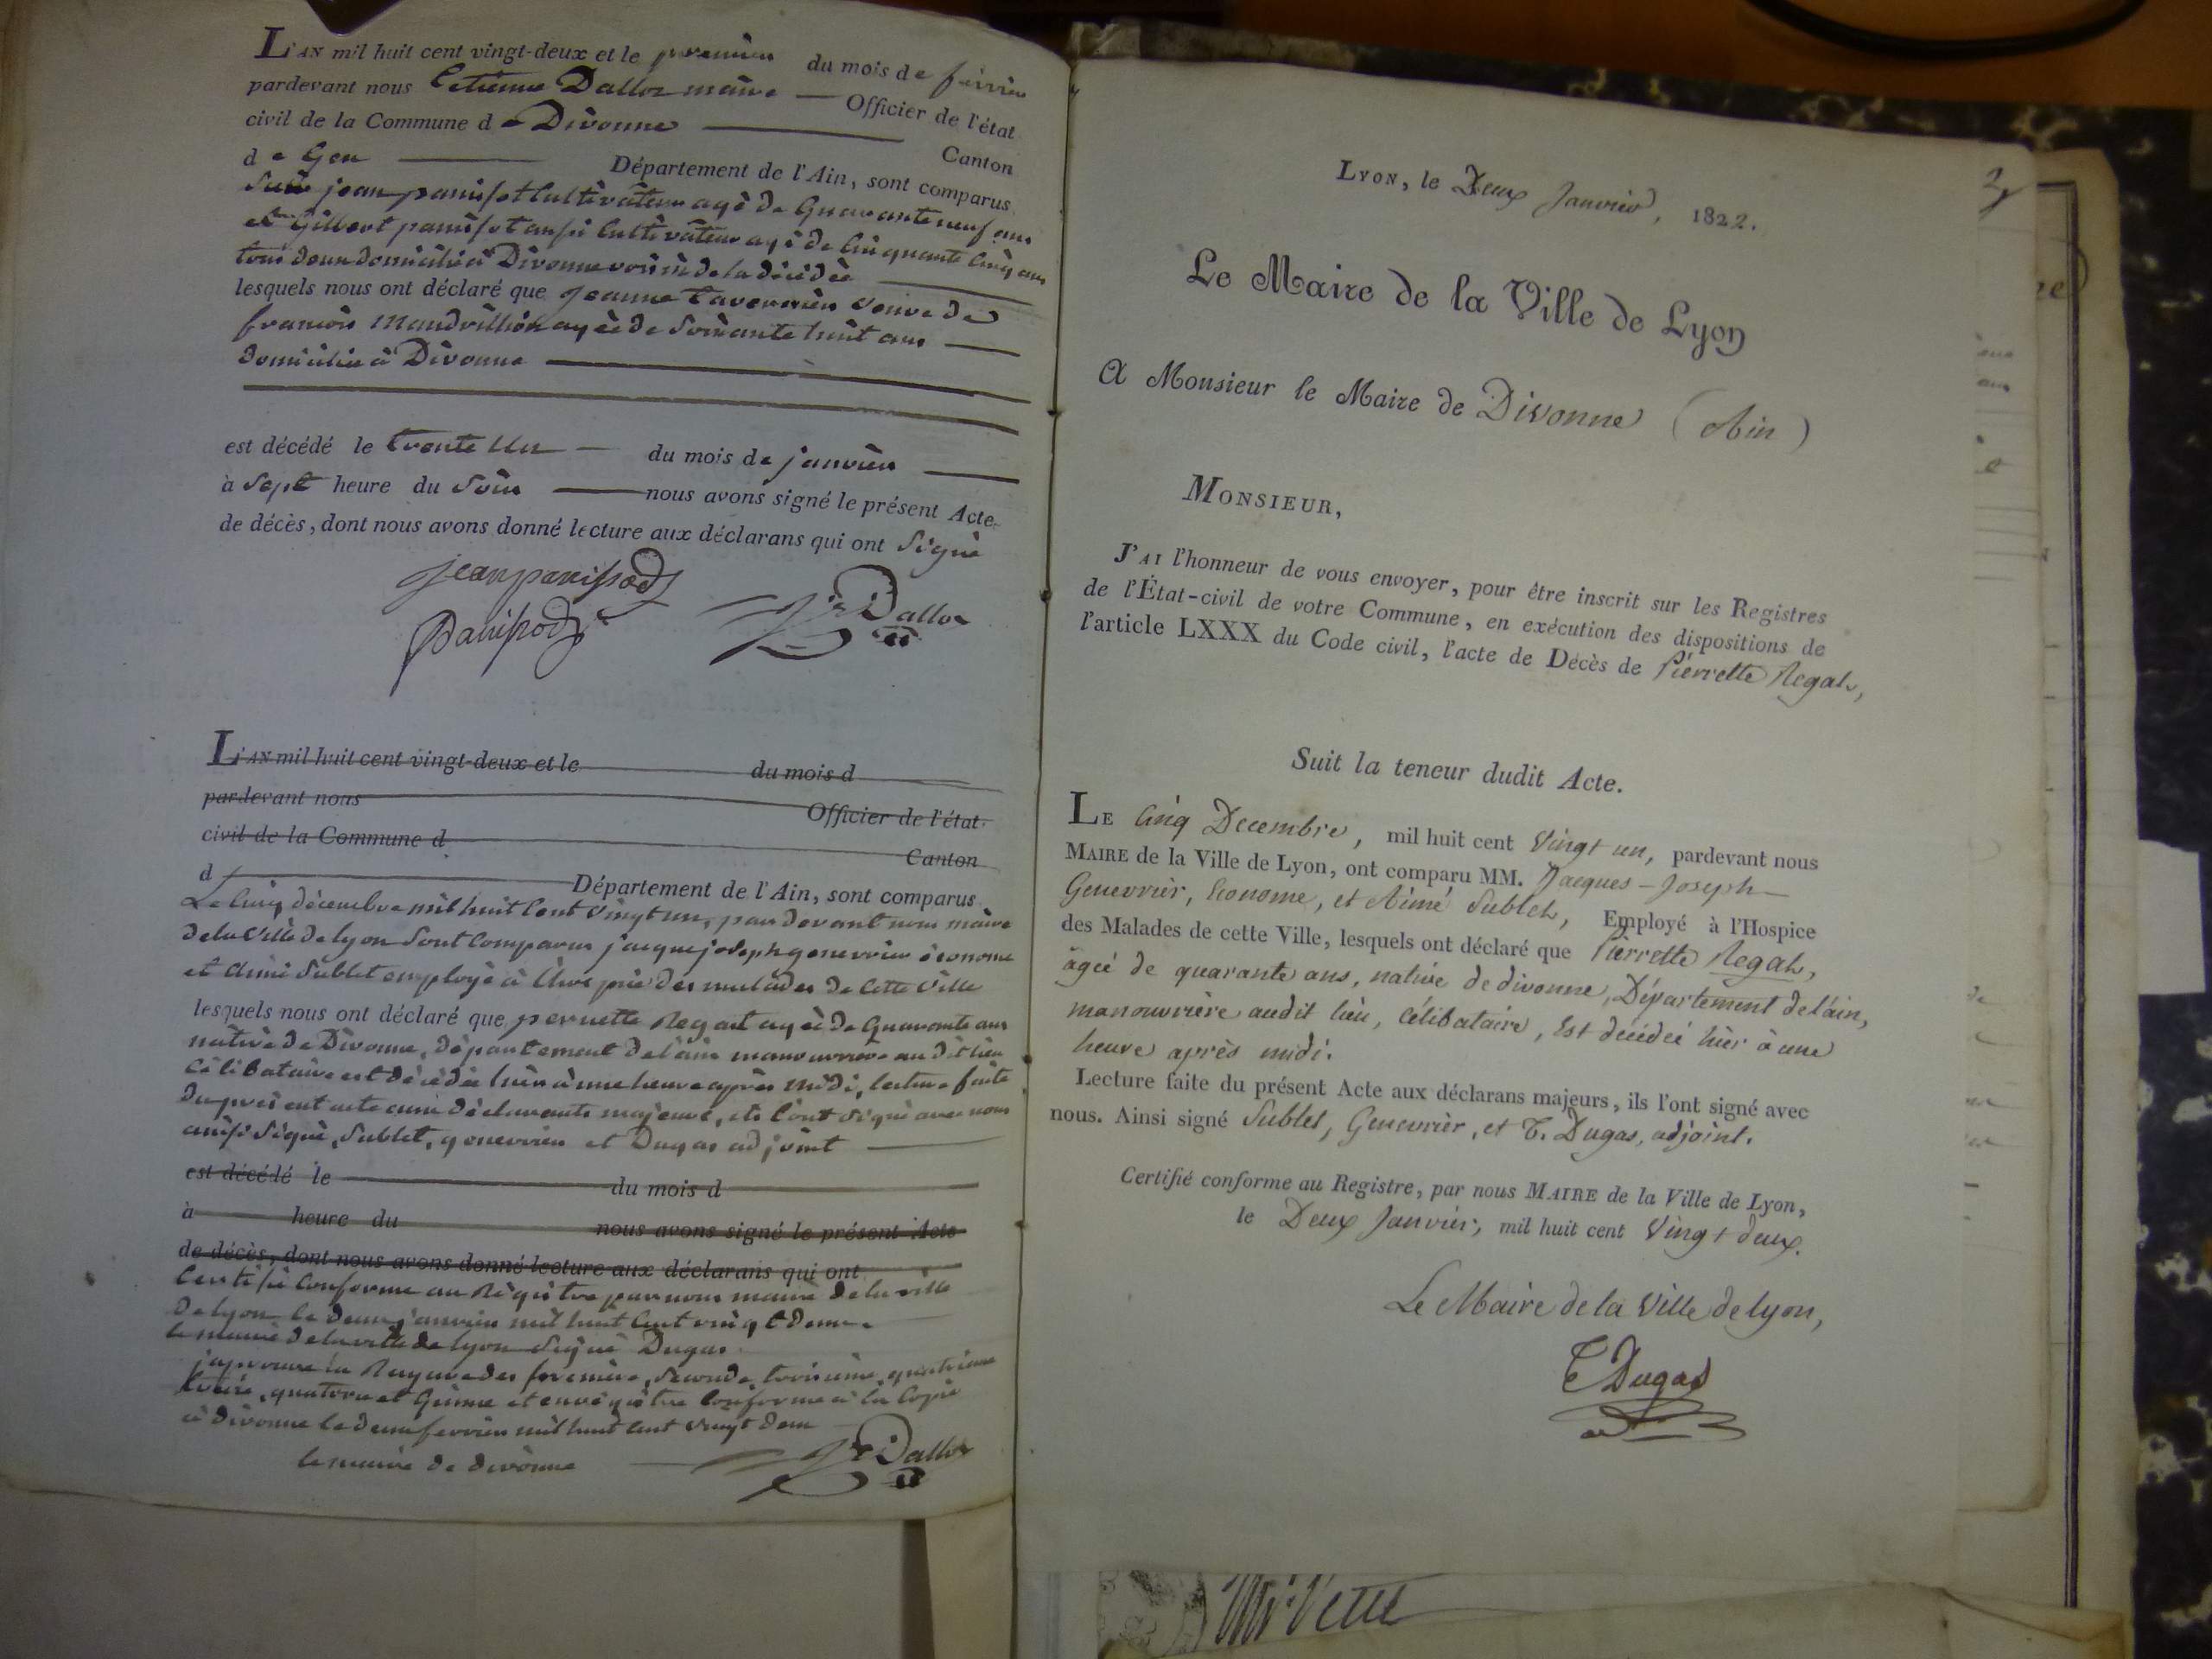 L'AN mil huit cent vingt-deux et le premier du mois de fevrier
pardevant nous Etienne Dalloz maire — Officier de l'état
civil de la Commune de Divonne — Canton
de Gex — Département de l'Ain, sont comparus
jean panissot Cultivateur agé de Quarante neuf ans
et Gilbert panissot aussi Cultivateur agé de Cinquante Cinq ans
tous deux domicilié à Divonne voisin de la décédée
lesquels nous ont déclaré que Jeanne Tavernier veuve de
francois Mandrillion agée de Soixante huit ans
domicilié à Divonne
est décédé le trente un du mois de janvier
à Sept heure du Soir — nous avons signé le présent Acte
de décès, dont nous avons donné lecture aux déclarans qui ont Signé
jean panissod
Panissod
Dalloz
L'AN mil huit cent vingt-deux et le du mois d
pardevant nous Officier de l'état
civil de la Commune d Canton
d Département de l'Ain, sont comparus
Le Cinq décembre mil huit Cent vingt un, par devant nous maire
de la Ville de lyon Sont Comparus jacque joseph genevrier économe
et Aimé Sublet employé à l'hospice des malades de Cette Ville
lesquels nous ont déclaré que pernette Regat agée de Quarante ans
native de Divonne, département de l'ain manouvriere au dit lieu
Célibataire est décédée hier à une heure après midi, lecture faite
du présent acte aux déclarants majeurs, ils l'ont signé avec nous
ainsi signé, Sublet, genevrier et Dugas adjoint
est décédé le du mois d
à heure du nous avons signé le présent Acte
de décès, dont nous avons donné lecture aux déclarans qui ont
Certifié Conforme au Régistre par nous maire de la ville
de lyon le deux janvier mil huit Cent vingt deux
le maire de la ville de lyon Signé Dugas
japrouve la Rayure des premiere, Seconde, troisieme, quatrieme
quatorze et Quinze et enregistre Conforme à la Copie
à divonne le deux fevrier mil huit cent vingt deux
le maire de divonne
Dalloz
LYON, le Deux Janvier, 1822.
Le Maire de la Ville de Lyon
A Monsieur le Maire de Divonne (Ain)
MONSIEUR,
J'AI l'honneur de vous envoyer, pour être inscrit sur les Registres
de l'État-civil de votre Commune, en exécution des dispositions de
l'article LXXX du Code civil, l'acte de Décès de Pierrette Regal,
Suit la teneur dudit Acte.
LE Cinq Decembre, mil huit cent Vingt un, pardevant nous
MAIRE de la Ville de Lyon, ont comparu MM. Jacques-Joseph
Genevrier, Econome, et Aimé Sublet, Employé à l'Hospice
des Malades de cette Ville, lesquels ont déclaré que Pierrette Regal,
agée de quarante ans, native de divonne, Département de l'ain,
manouvrière audit lieu, Célibataire, Est décédée hier à une
heure après midi.
Lecture faite du présent Acte aux déclarans majeurs, ils l'ont signé avec
nous. Ainsi signé Sublet, Genevrier, et T. Dugas, adjoint.
Certifié conforme au Registre, par nous MAIRE de la Ville de Lyon,
le Deux Janvier, mil huit cent Vingt deux.
Le Maire de la Ville de lyon,
T Dugas